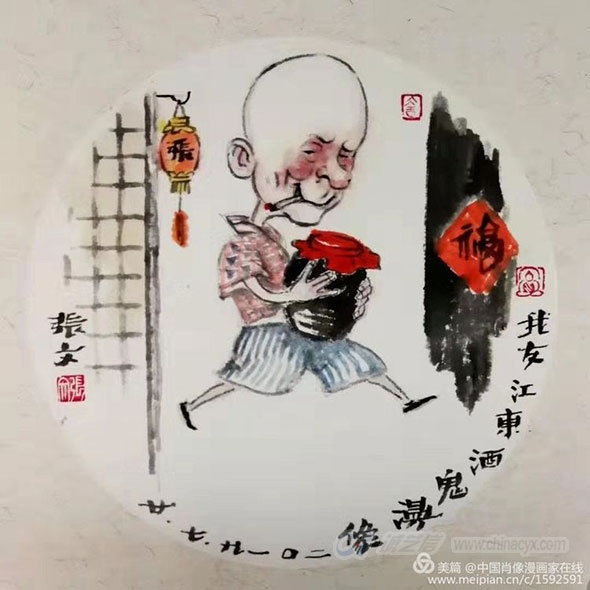 張
福
我友江東酒鬼像二〇一九
張文
www.chinacyx.com
美篇 @中国肖像漫画家在线
www.meipian.cn/c/1592591